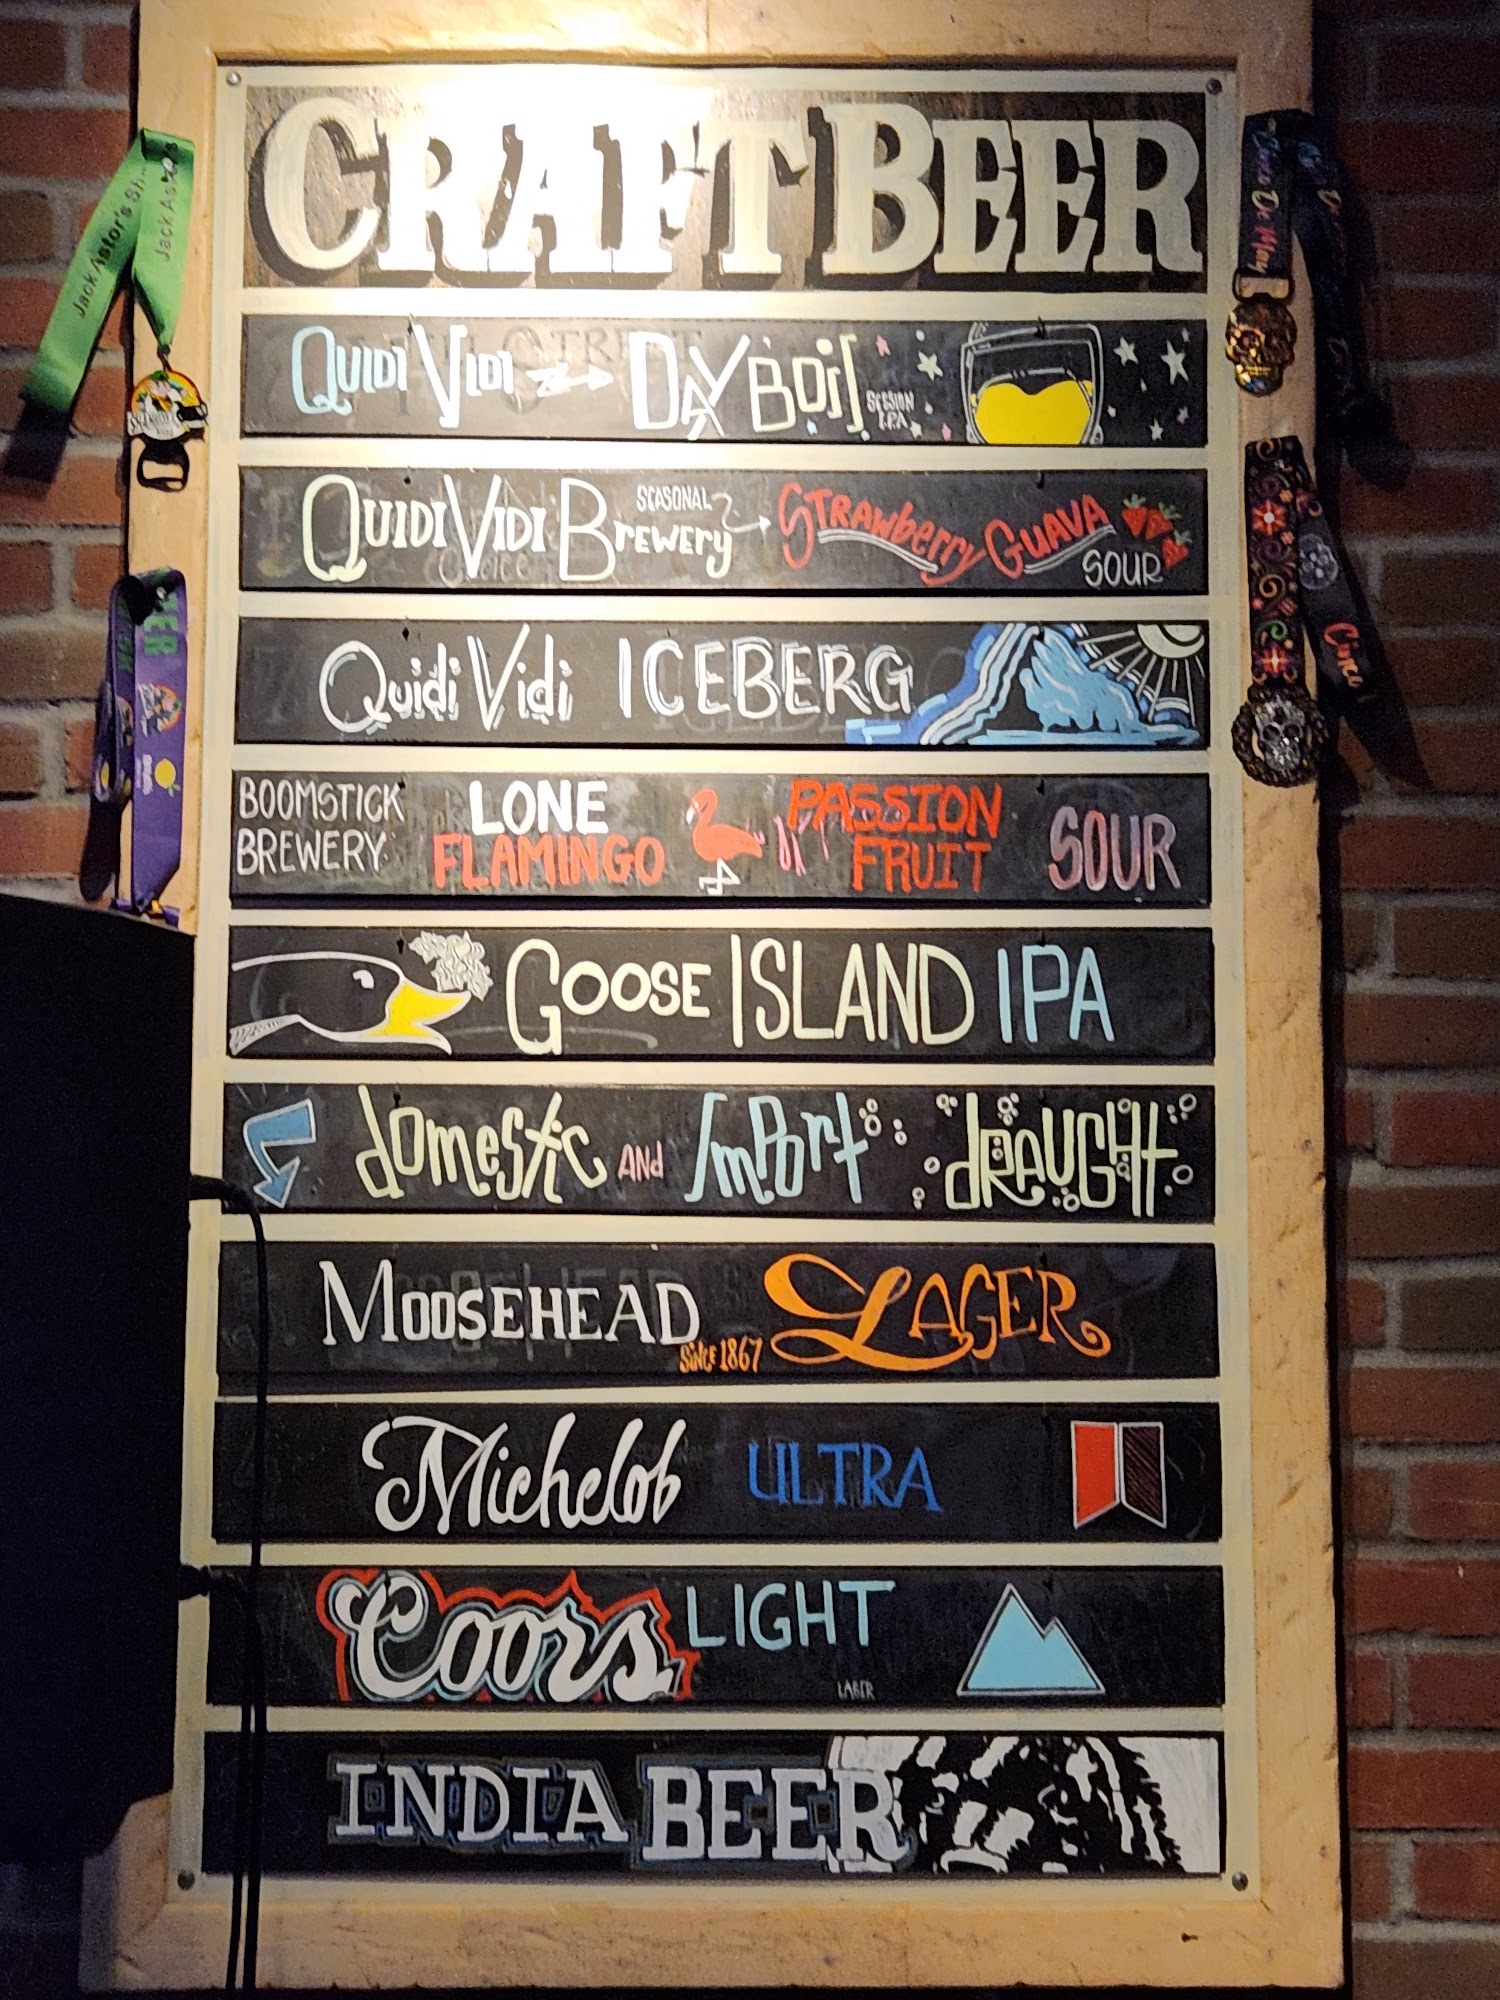 CRAFT BEER
QUIDI VIDI DAY BOIS SESSION IPA
QUIDI VIDI BREWERY SEASONAL STRAWBERRY GUAVA SOUR
Quidi Vidi ICEBERG
BOOMSTICK BREWERY LONE FLAMINGO PASSION FRUIT SOUR
GOOSE ISLAND IPA
domestic AND Import DRAUGHT
MOOSEHEAD SINCE 1867 LAGER
Michelob ULTRA
Coors LIGHT LAGER
INDIA BEER
Jack Astor's
Jack Astor's
Cinco De May
Cinco